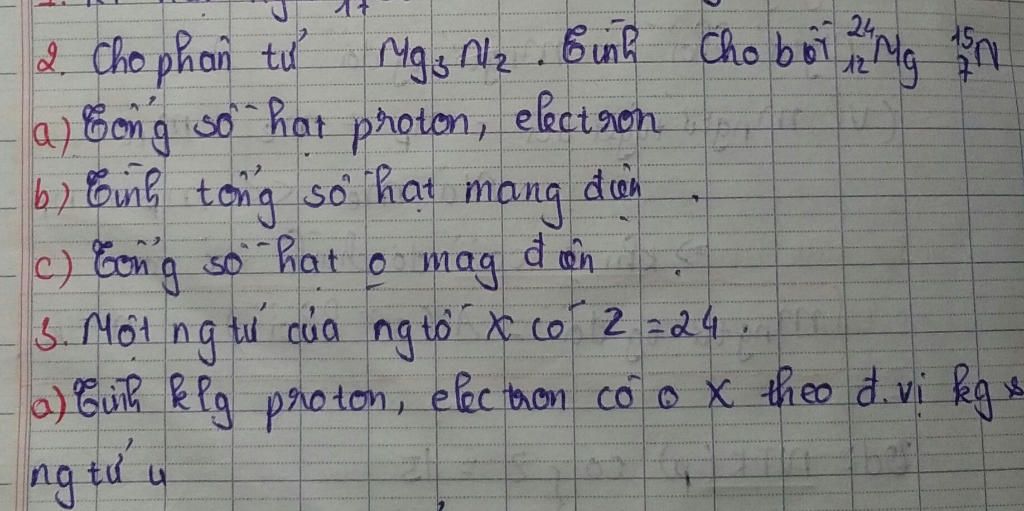 2. Cho phân tử Mg3N2. Tính Cho bởi 24 12 Mg 15 7 N
a) Tổng số hạt proton, electron
b) Tính tổng số hạt mang điện.
c) Tổng số hạt o mag điện.
3. Một ng tử của ng tố X có Z = 24.
a) Tính klg proton, electron có o X theo đ.vị kg
ng tử u